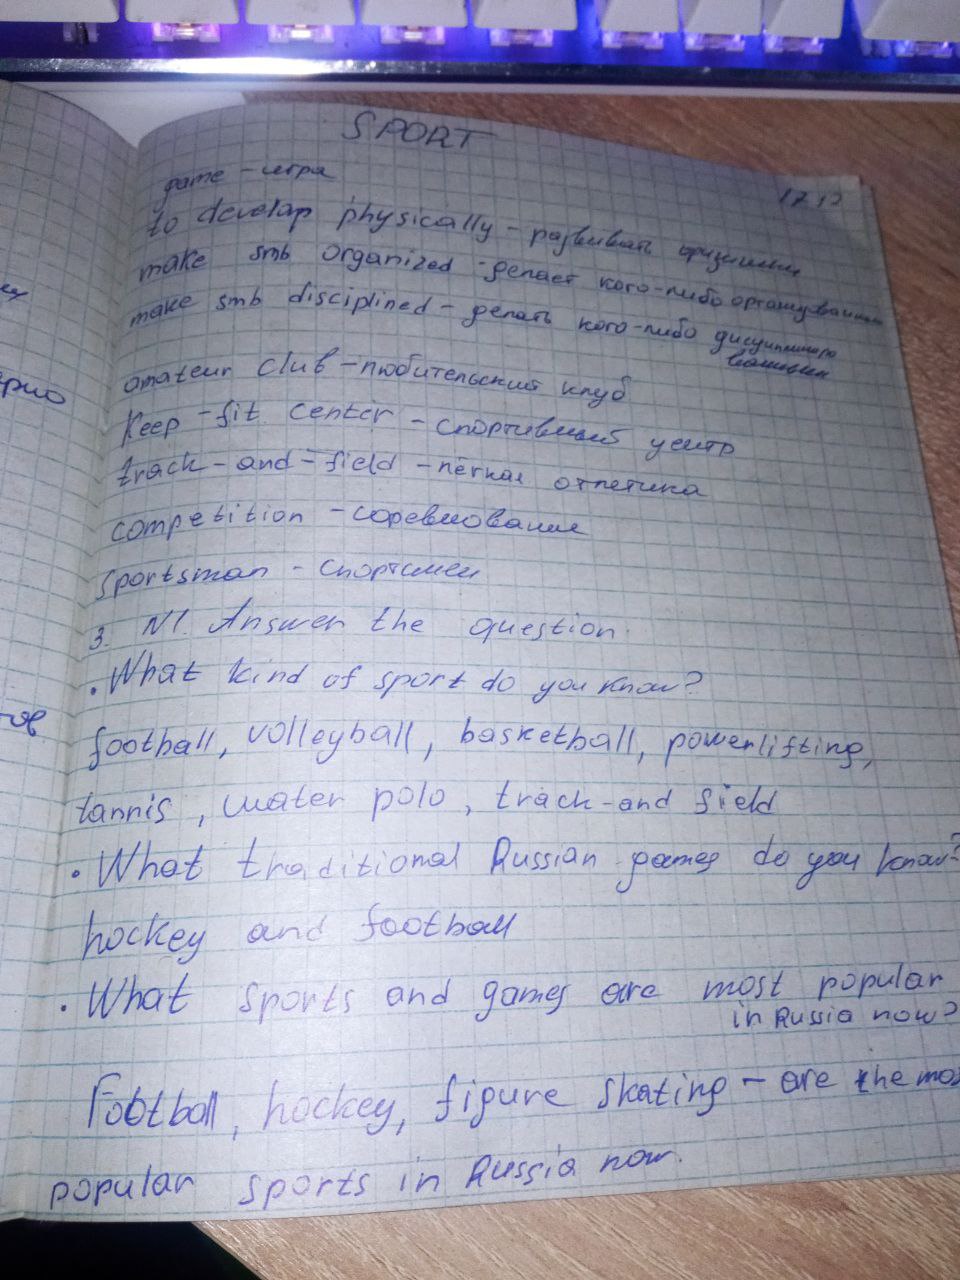 SPORT
17.12
game - игра
to develop physically - развивать физически
make smb organized - делает кого-либо организованным
make smb disciplined - делать кого-либо дисциплиниро
ванным
amateur club - любительский клуб
Keep-fit center - спортивный центр
track-and-field - лёгкая атлетика
competition - соревнование
Sportsman - спортсмен
3. N1. Answer the question.
• What kind of sport do you know?
football, volleyball, basketball, powerlifting,
tannis, water polo, track-and field
• What traditional Russian games do you know?
hockey and football
• What sports and games are most popular
in Russia now?
Football, hockey, figure skating - are the mos
popular sports in Russia now.